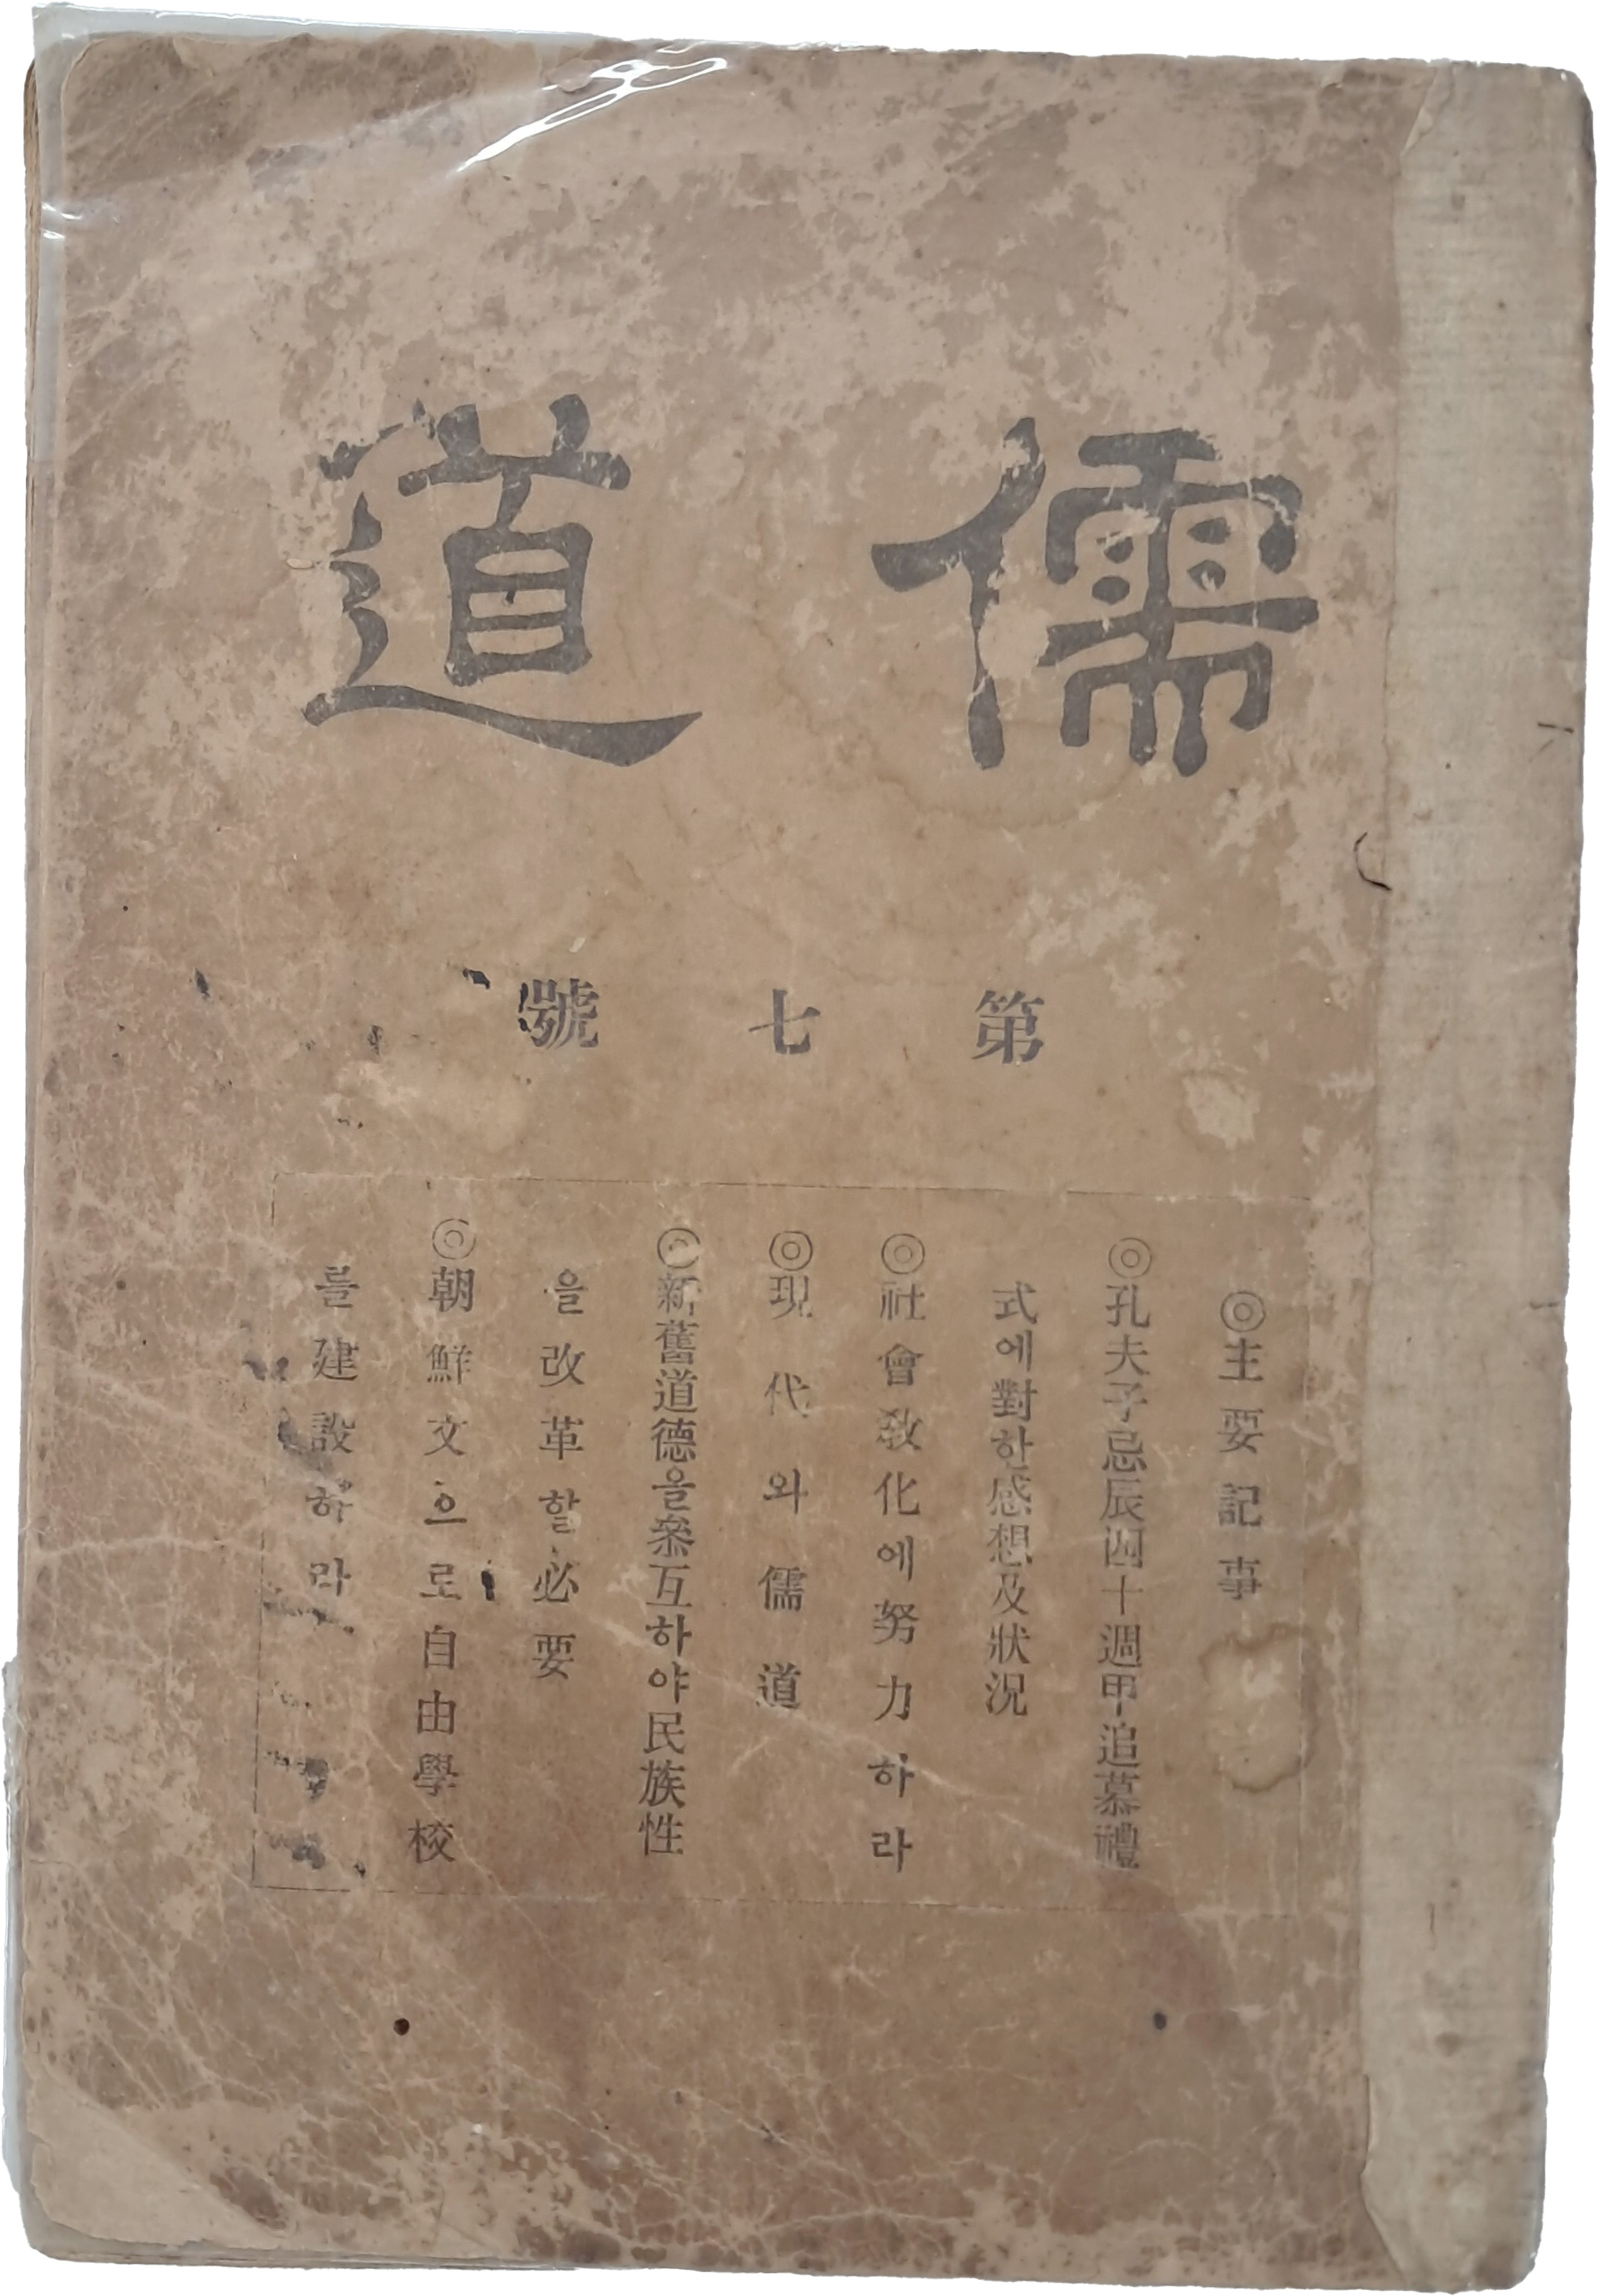 儒道
第七號
◎主要記事
◎孔夫子忌辰四十週甲追慕禮
式에對한感想及狀況
◎社會敎化에努力하라
◎現代와儒道
◎新舊道德을叅互하야民族性
을改革할必要
◎朝鮮文으로自由學校
를建設하라